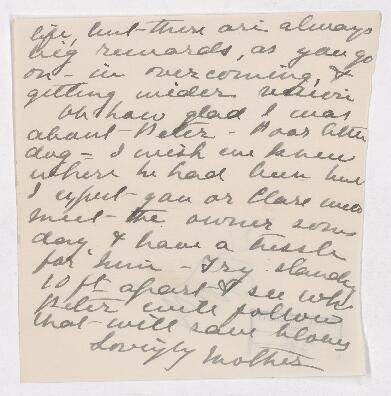 life, but there are always
big rewards, as you go
on - in overcoming, &
getting wider vision
Oh how glad I was
about Peter - Poor little
dog - I wish we knew
where he had been but
I expect you or Clare will
meet the owner some
day & have a tussle
for him - Try standing
10 ft apart & see who
Peter will follow
that will save blows
Lovingly Mother